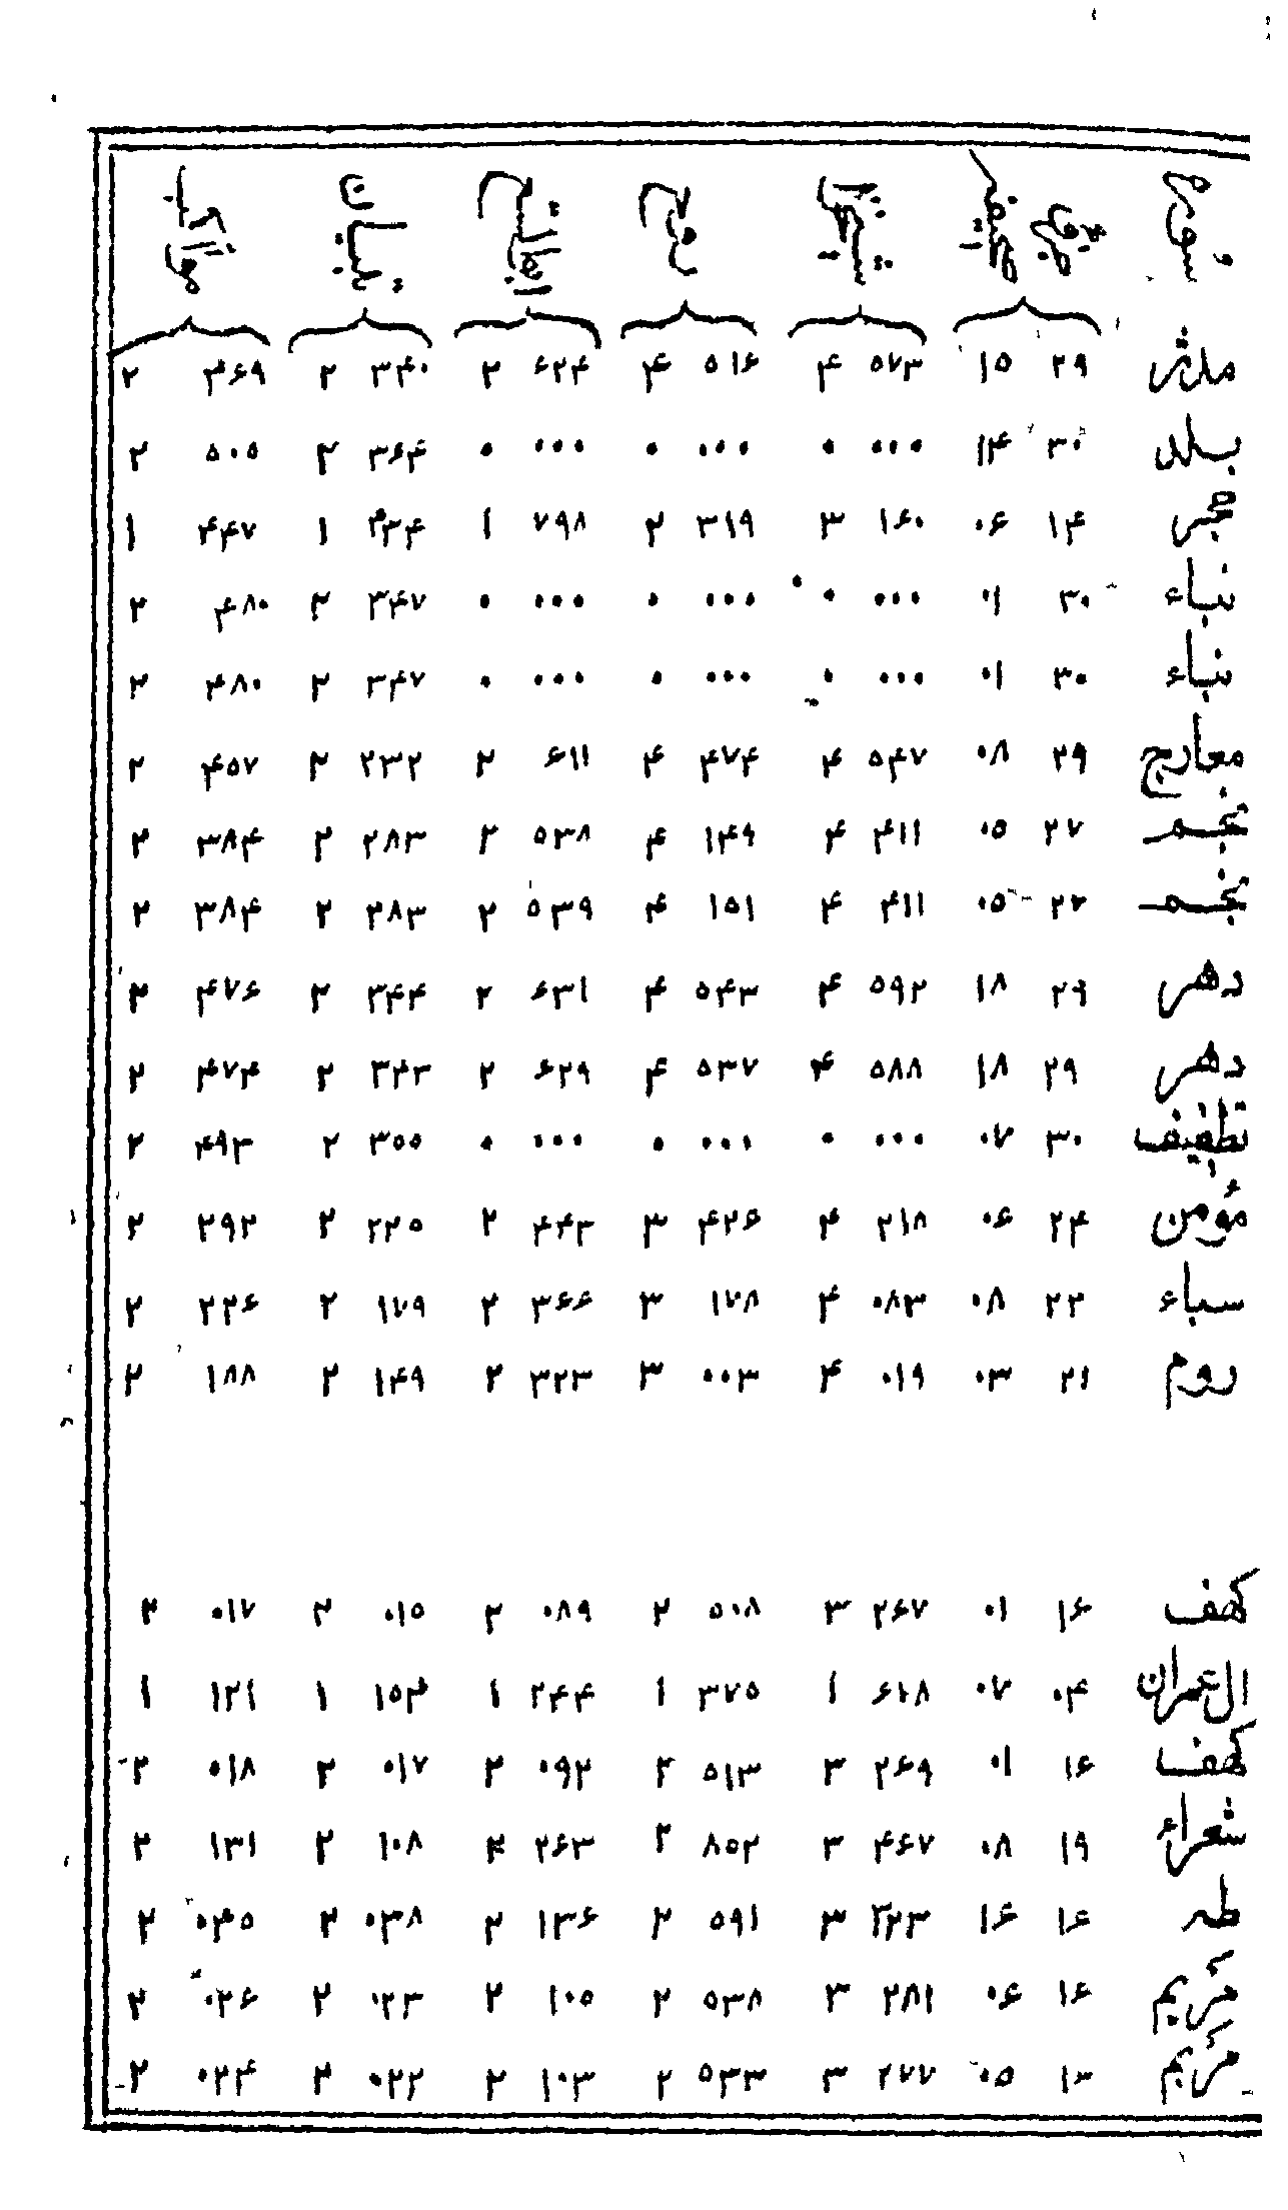 مدثر ۲۹ ۱۵ ۵۷۳ ۴ ۵۱۶ ۴ ۶۲۴ ۲ ۳۴۰ ۲ ۴۶۹ ۲
بلد ۳۰ ۱۴ ۰۰۰ ۰ ۰۰۰ ۰ ۰۰۰ ۰ ۳۶۴ ۲ ۵۰۵ ۲
حجر ۱۴ ۰۶ ۱۶۰ ۳ ۳۱۹ ۲ ۷۹۸ ۱ ۴۳۴ ۱ ۴۴۷ ۱
نباء ۳۰ ۰۱ ۰۰۰ ۰ ۰۰۰ ۰ ۰۰۰ ۰ ۳۴۷ ۲ ۴۸۰ ۲
نباء ۳۰ ۰۱ ۰۰۰ ۰ ۰۰۰ ۰ ۰۰۰ ۰ ۳۴۷ ۲ ۴۸۰ ۲
معارج ۲۹ ۰۸ ۵۴۷ ۴ ۴۷۴ ۴ ۶۱۱ ۲ ۲۳۲ ۲ ۴۵۷ ۲
نجم ۲۷ ۰۵ ۴۱۱ ۴ ۱۴۹ ۴ ۵۳۸ ۲ ۲۸۳ ۲ ۳۸۴ ۲
نجم ۲۷ ۰۵ ۴۱۱ ۴ ۱۵۱ ۴ ۵۳۹ ۲ ۲۸۳ ۲ ۳۸۴ ۲
دهر ۲۹ ۱۸ ۵۹۲ ۴ ۵۴۳ ۴ ۶۳۱ ۲ ۳۴۴ ۲ ۴۷۶ ۲
دهر ۲۹ ۱۸ ۵۸۸ ۴ ۵۳۷ ۴ ۶۲۹ ۲ ۳۴۳ ۲ ۴۷۴ ۲
تطفیف ۳۰ ۰۷ ۰۰۰ ۰ ۰۰۰ ۰ ۰۰۰ ۰ ۳۵۵ ۲ ۴۹۳ ۲
مؤمن ۲۴ ۰۶ ۲۱۸ ۴ ۴۲۶ ۳ ۴۴۳ ۲ ۲۲۵ ۲ ۲۹۲ ۲
سباء ۲۲ ۰۸ ۰۸۳ ۴ ۱۷۸ ۳ ۳۶۶ ۲ ۱۷۹ ۲ ۲۲۶ ۲
روم ۲۱ ۰۳ ۰۱۹ ۴ ۰۰۳ ۳ ۳۲۳ ۲ ۱۴۹ ۲ ۱۸۸ ۲
کهف ۱۶ ۰۱ ۲۶۷ ۳ ۵۰۸ ۲ ۰۸۹ ۲ ۰۱۵ ۲ ۰۱۷ ۲
ال عمران ۰۴ ۰۷ ۶۱۸ ۱ ۳۷۵ ۱ ۲۴۴ ۱ ۱۵۳ ۱ ۱۲۱ ۱
کهف ۱۶ ۰۱ ۲۶۹ ۳ ۵۱۳ ۲ ۰۹۲ ۲ ۰۱۷ ۲ ۰۱۸ ۲
شعراء ۱۹ ۰۸ ۴۶۷ ۳ ۸۵۲ ۲ ۲۶۳ ۲ ۱۰۸ ۲ ۱۳۱ ۲
طه ۱۶ ۱۶ ۳۲۳ ۳ ۵۹۱ ۲ ۱۳۶ ۲ ۰۳۸ ۲ ۰۴۵ ۲
مریم ۱۶ ۰۶ ۲۸۱ ۳ ۵۳۸ ۲ ۱۰۵ ۲ ۰۲۳ ۲ ۰۲۶ ۲
مریم ۱۶ ۰۵ ۲۷۷ ۳ ۵۳۳ ۲ ۱۰۳ ۲ ۰۲۲ ۲ ۰۲۴ ۲